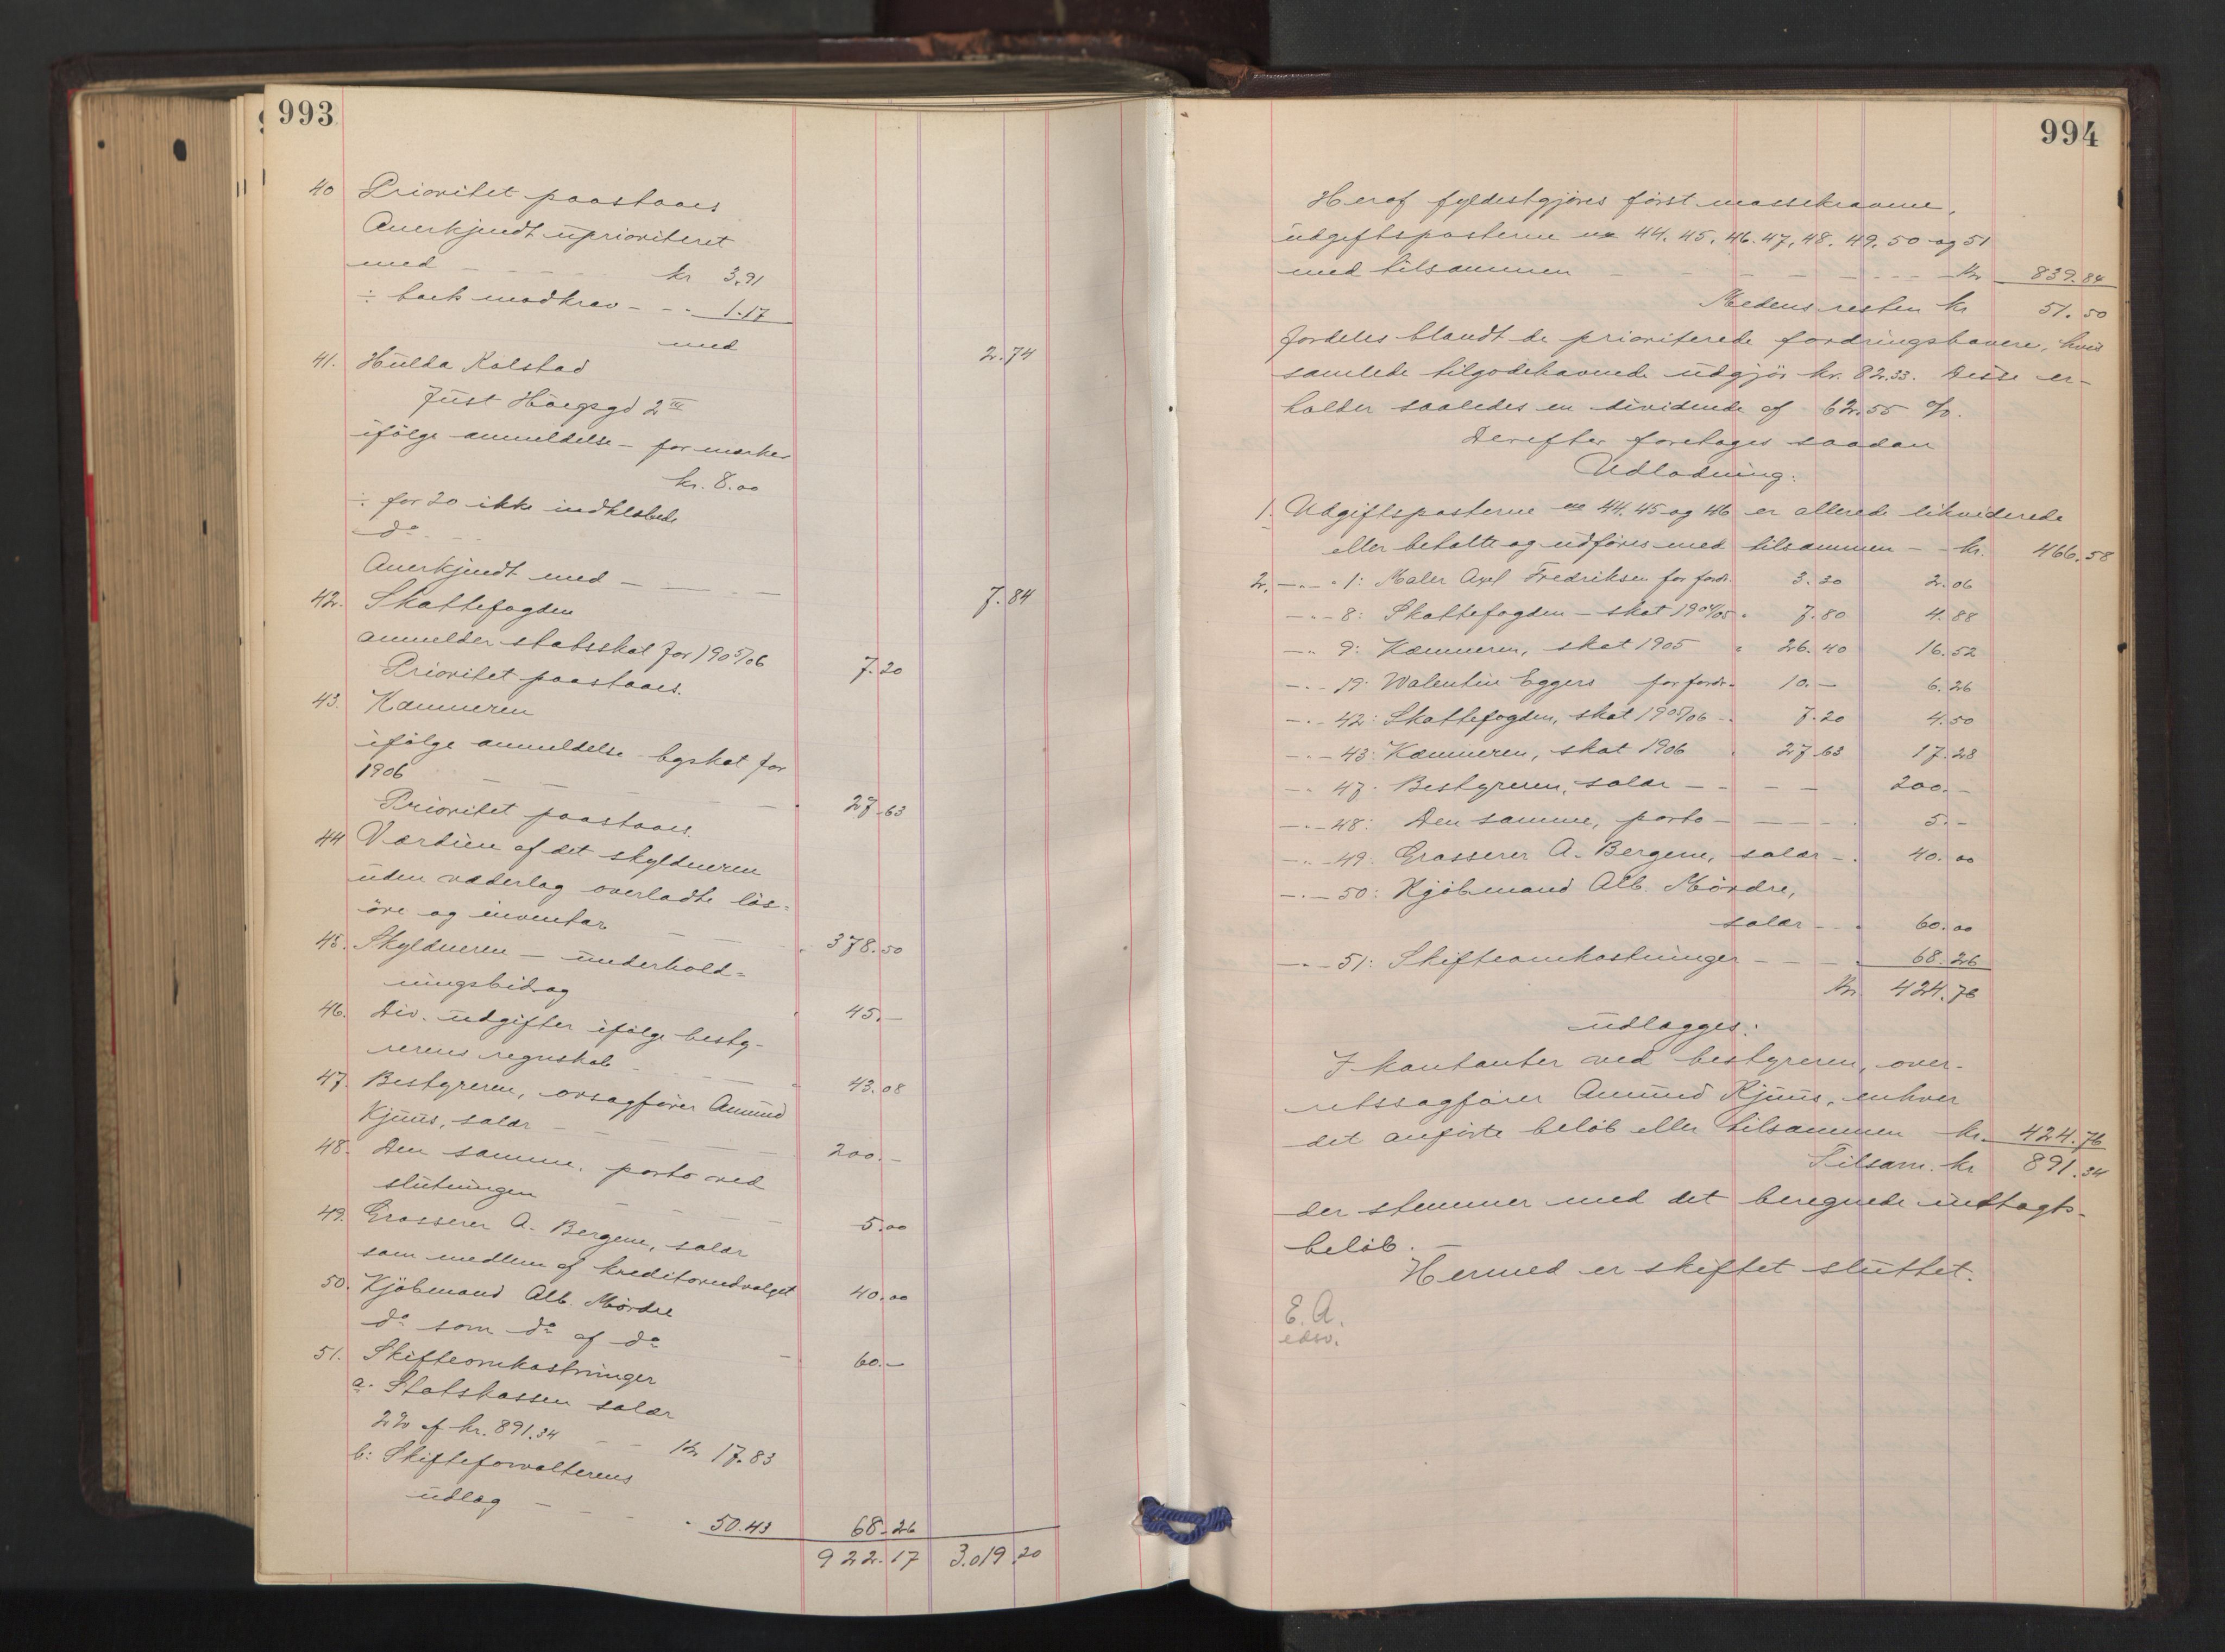 993
40 Prioritet paastaaes
Anerkjendt uprioriteret
med - - - - kr 3.91
÷ boets modkrav - - - 1.17
med 2.74
41. Hulda Kolstad
Just Høegsgd 2 III
ifölge anmeldelse - for merker
kr. 8.00
÷ for 20 ikke indkløbede
do
Anerkjendt med - - - 7.84
42. Skattefogden
anmelder statsskat for 1905/06 7.20
Prioritet paastaaes.
43. Kæmneren
ifölge anmeldelse byskat for
1906 - - - - - 27.63
Prioritet paastaaes.
44 Værdien af det skyldneren
uden vederlag overladte lös=
öre og inventar - - - 378.50
45. Skyldneren - underhold=
ningsbidrag 45.-
46. Div. udgifter ifölge besty-
rerens regnskab - - - 43.08
47. Bestyreren, orsagförer Amund
Kjuus, salær - - - 200.-
48. Den samme, porto ved
slutningen - - - 5.00
49. Grosserer A. Bergene, salær
som medlem af kreditorudvalget 40.00
50. Kjöbmand Alb. Mördre
do som do af do - 60.-
51. Skifteomkostninger
a. Statskassen salær
2% af kr. 891.34 - - Kr 17.83
b: Skifteforvalterens
udlæg - - - - 50.43 68.26
922.17 3.019.20
994
Heraf fyldestgjöres först massekravene,
udgiftsposterne no 44. 45. 46. 47, 48. 49. 50 og 51
med tilsammen - - - - - - Kr 839.84
Medens resten kr 51.50
fordeles blandt de prioriterede fordringshavere, hvis
samlede tilgodehavende udgjör kr. 82.33. Disse er-
holder saaledes en dividende af 62.55 %.
Derefter foretages saadan
Udlodning:
1. Udgiftsposterne no 44. 45 og 46 er allerede likviderede
eller betalte og udföres med tilsammen - - kr. 466.58
2. - - 1: Maler Axel Fredriksen for fordr. 3.30 2.06
- - 8: Skattefogden - skat 1904/05 - 7.80 4.88
- - 9: Kæmneren, skat 1905 " 26.40 16.52
- - 19: Walentin Eggers for fordr. 10.- 6.26
- - 42: Skattefogden, skat 1905/06 - 7.20 4.50
- - 43: Kæmneren, skat 1906 27.63 17.28
- - 47. Bestyreren, salær - - - - 200.-
- - 48: Den samme, porto - - - - 5.-
- - 49. Grosserer A. Bergene, salær - 40.00
- - 50: Kjöbmand Alb. Mördre,
salær - - 60.00
- - 51: Skifteomkostninger - - - 68.26
Kr. 424.76
udlægges:
I kontanter ved bestyreren, over-
retssagförer Amund Kjuus, enhver
det anförte belöb eller tilsammen kr. 424.76
Tilsam. kr 891.34
der stemmer med det beregnede indtægts-
belöb. -
Hermed er skiftet sluttet.
E. A.